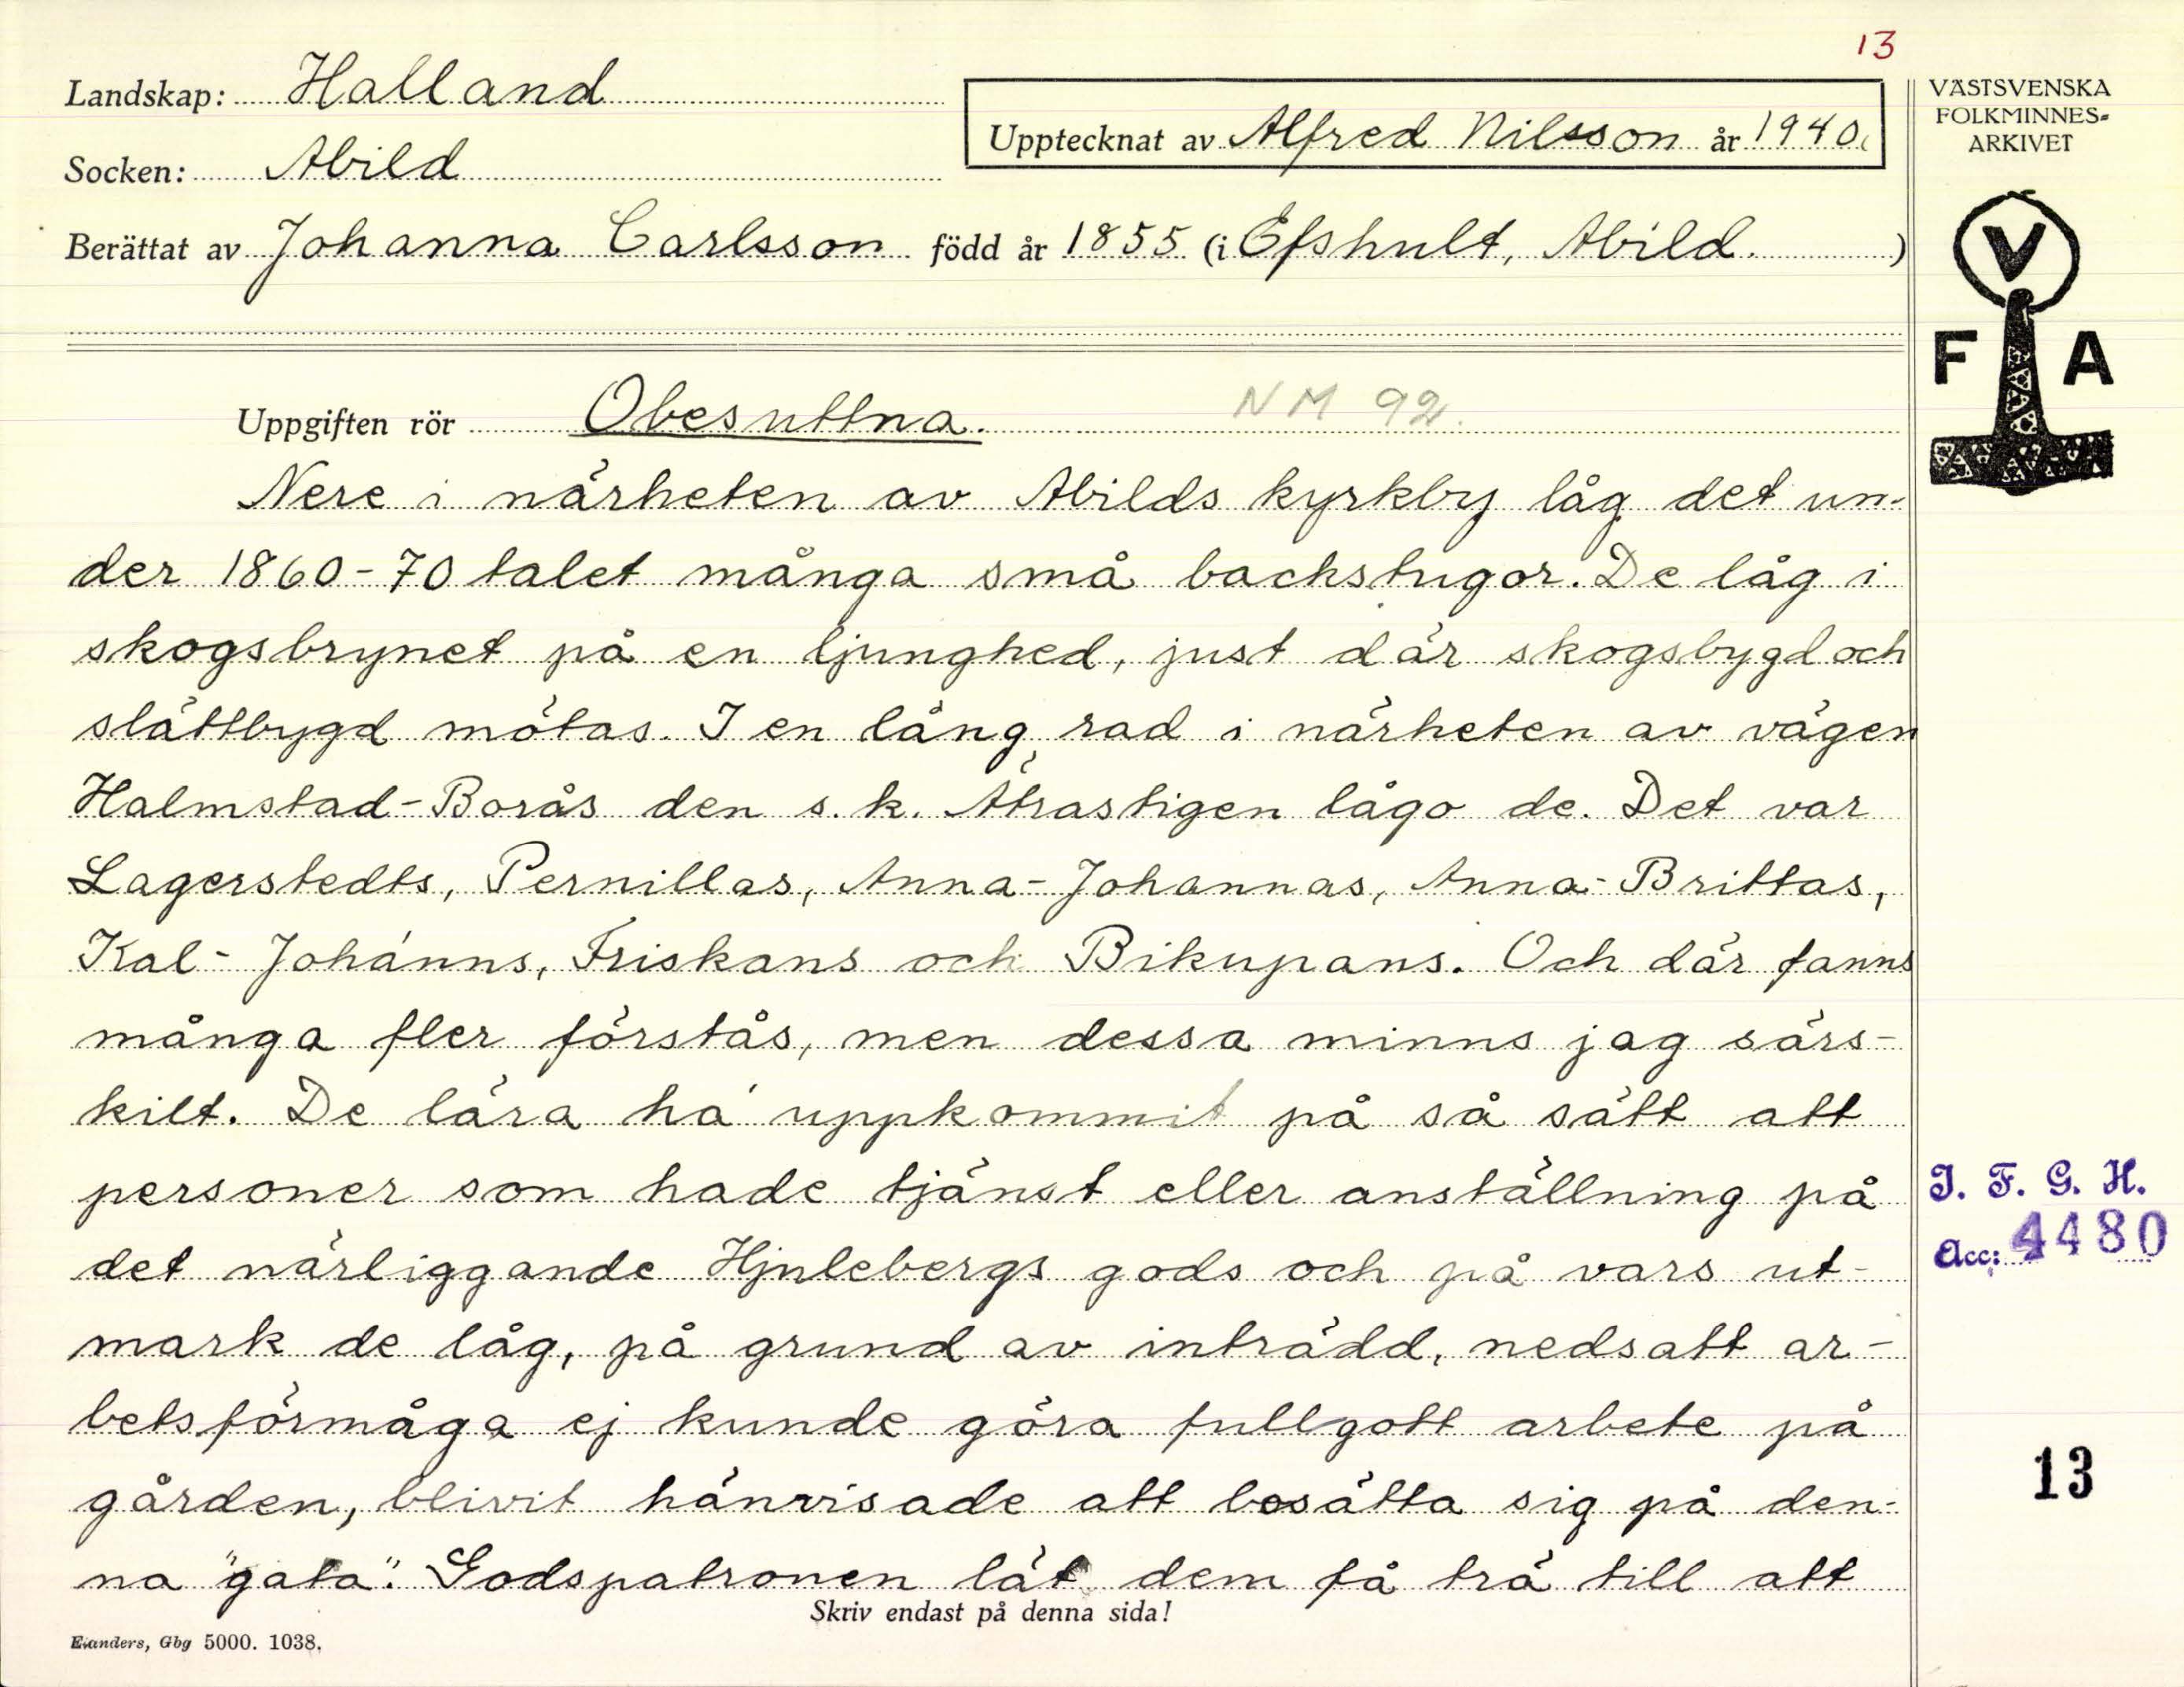 13
Landskap: Halland
Socken: Abild
Upptecknat av Alfred Nilsson år 1940.
Berättat av Johanna Carlsson född år 1855 (i Efshult, Abild. )
VÄSTSVENSKA
FOLKMINNES-
ARKIVET
V
F A
Uppgiften rör Obesuttna. NM 92.
Nere i närheten av Abilds kyrkby låg det un-
der 1860-70 talet många små backstugor. De låg i
skogsbrynet på en ljunghed, just där skogsbygd och
slättbygd mötas. I en lång rad i närheten av vägen
Halmstad-Borås den s.k. Ätrastigen lågo de. Det var
Lagerstedts, Pernillas, Anna-Johannas, Anna-Brittas,
Kal-Johánns, Friskans och Bikupans. Och där fanns
många fler förstås, men dessa minns jag särs-
kilt. De lära ha uppkommit på så sätt att
personer som hade tjänst eller anställning på
det närliggande Hjulebergs gods och på vars ut-
mark de låg, på grund av inträdd, nedsatt ar-
betsförmåga ej kunde göra fullgott arbete på
gården, blivit hänvisade att bosätta sig på den-
na "gata". Godspatronen lät dem få trä till att
Skriv endast på denna sida!
Elanders, Gbg 5000. 1038.
I. F. G. H.
Acc: 4480
13